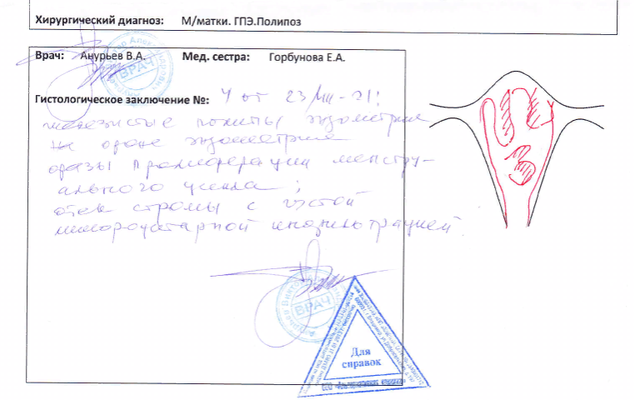 Хирургический диагноз: М/матки. ГПЭ.Полипоз
Врач: Анурьев В.А. Мед. сестра: Горбунова Е.А.
Гистологическое заключение №: 4 от 23/VIII-21:
железистые полипы эндометрия
на фоне эндометрия
фазы пролиферации менстру-
ального цикла;
отек стромы с густой
лимфоцитарной инфильтрацией.
ВРАЧ
ВРАЧ
Для
справок